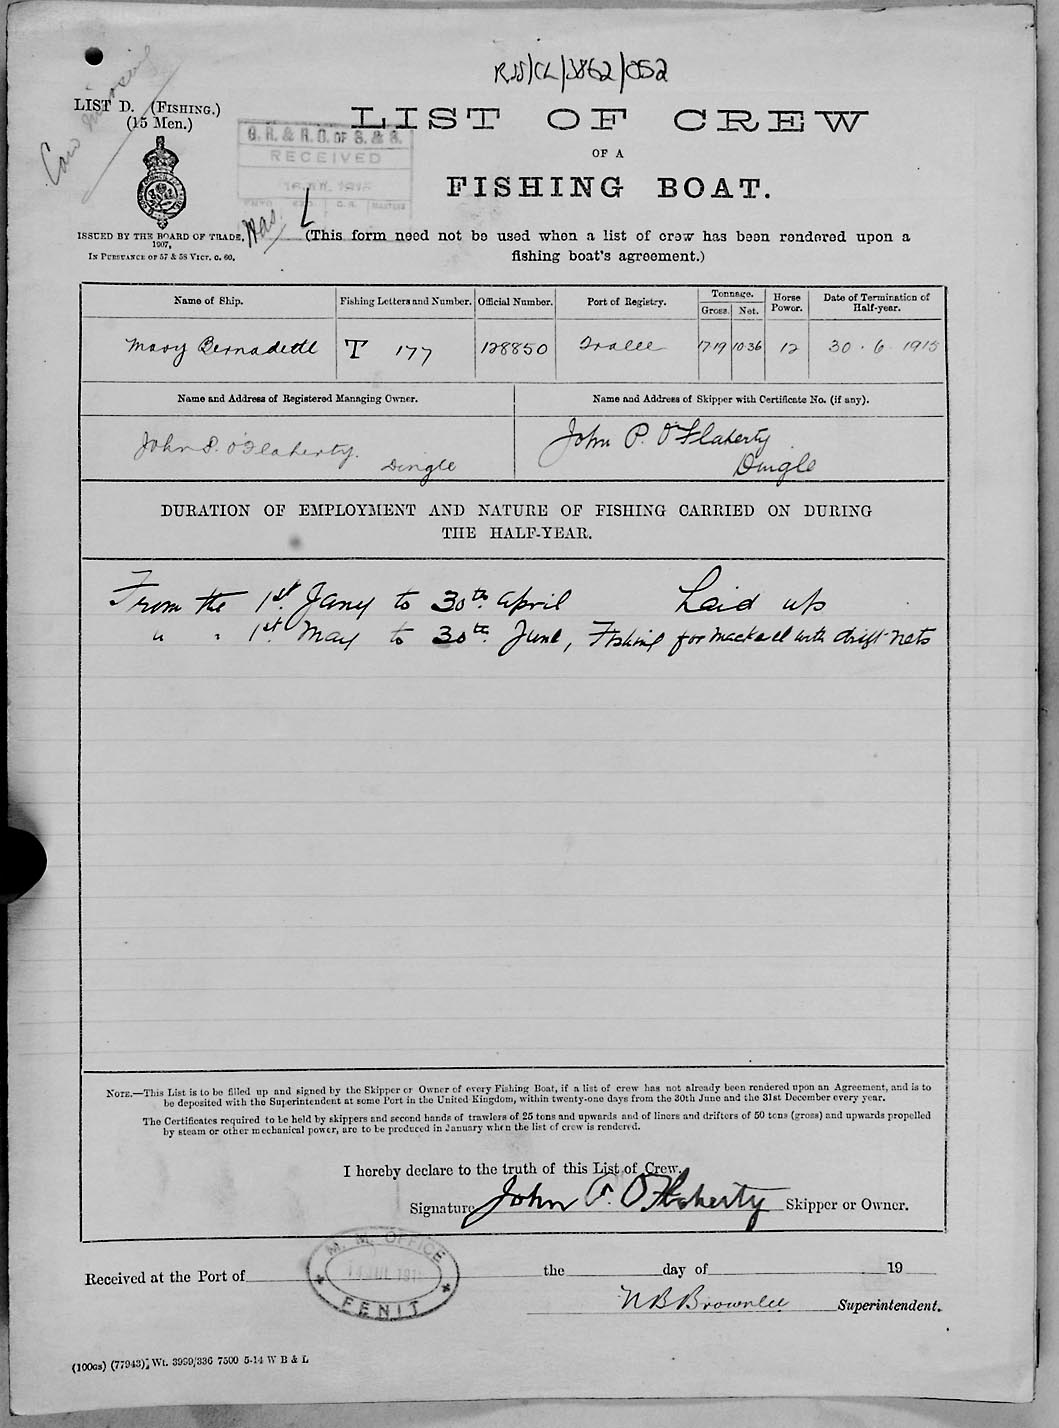 RSS/CL/3862/052
LIST D. (FISHING.)
(15 Men.)
LIST OF CREW
OF A
FISHING BOAT.
G. R. & R. O. OF S. & S.
RECEIVED
ISSUED BY THE BOARD OF TRADE,
1907,
IN PURSUANCE OF 57 & 58 VICT. C. 60.
(This form need not be used when a list of crew has been rendered upon a
fishing boat's agreement.)
Name of Ship. Fishing Letters and Number. Official Number. Port of Registry. Tonnage. Gross. Net. Horse Power. Date of Termination of Half-year.
Mary Bernadette T 177 128850 Tralee 17.19 10.36 12 30 . 6 . 1915
Name and Address of Registered Managing Owner. Name and Address of Skipper with Certificate No. (if any).
John P. O'Flaherty. Dingle John P. O'Flaherty Dingle
DURATION OF EMPLOYMENT AND NATURE OF FISHING CARRIED ON DURING
THE HALF-YEAR.
From the 1st. Jany to 30th. April Laid up
" " 1st. May to 30th. June, Fishing for mackerel with drift nets
NOTE.—This List is to be filled up and signed by the Skipper or Owner of every Fishing Boat, if a list of crew has not already been rendered upon an Agreement, and is to
be deposited with the Superintendent at some Port in the United Kingdom, within twenty-one days from the 30th June and the 31st December every year.
The Certificates required to be held by skippers and second hands of trawlers of 25 tons and upwards and of liners and drifters of 50 tons (gross) and upwards propelled
by steam or other mechanical power, are to be produced in January when the list of crew is rendered.
I hereby declare to the truth of this List of Crew.
Signature John P. O'Flaherty Skipper or Owner.
M. M. OFFICE
FENIT
Received at the Port of the day of 19
N B Brownlee Superintendent.
(100GS) (77943). Wt. 3999/336 7500 5-14 W B & L